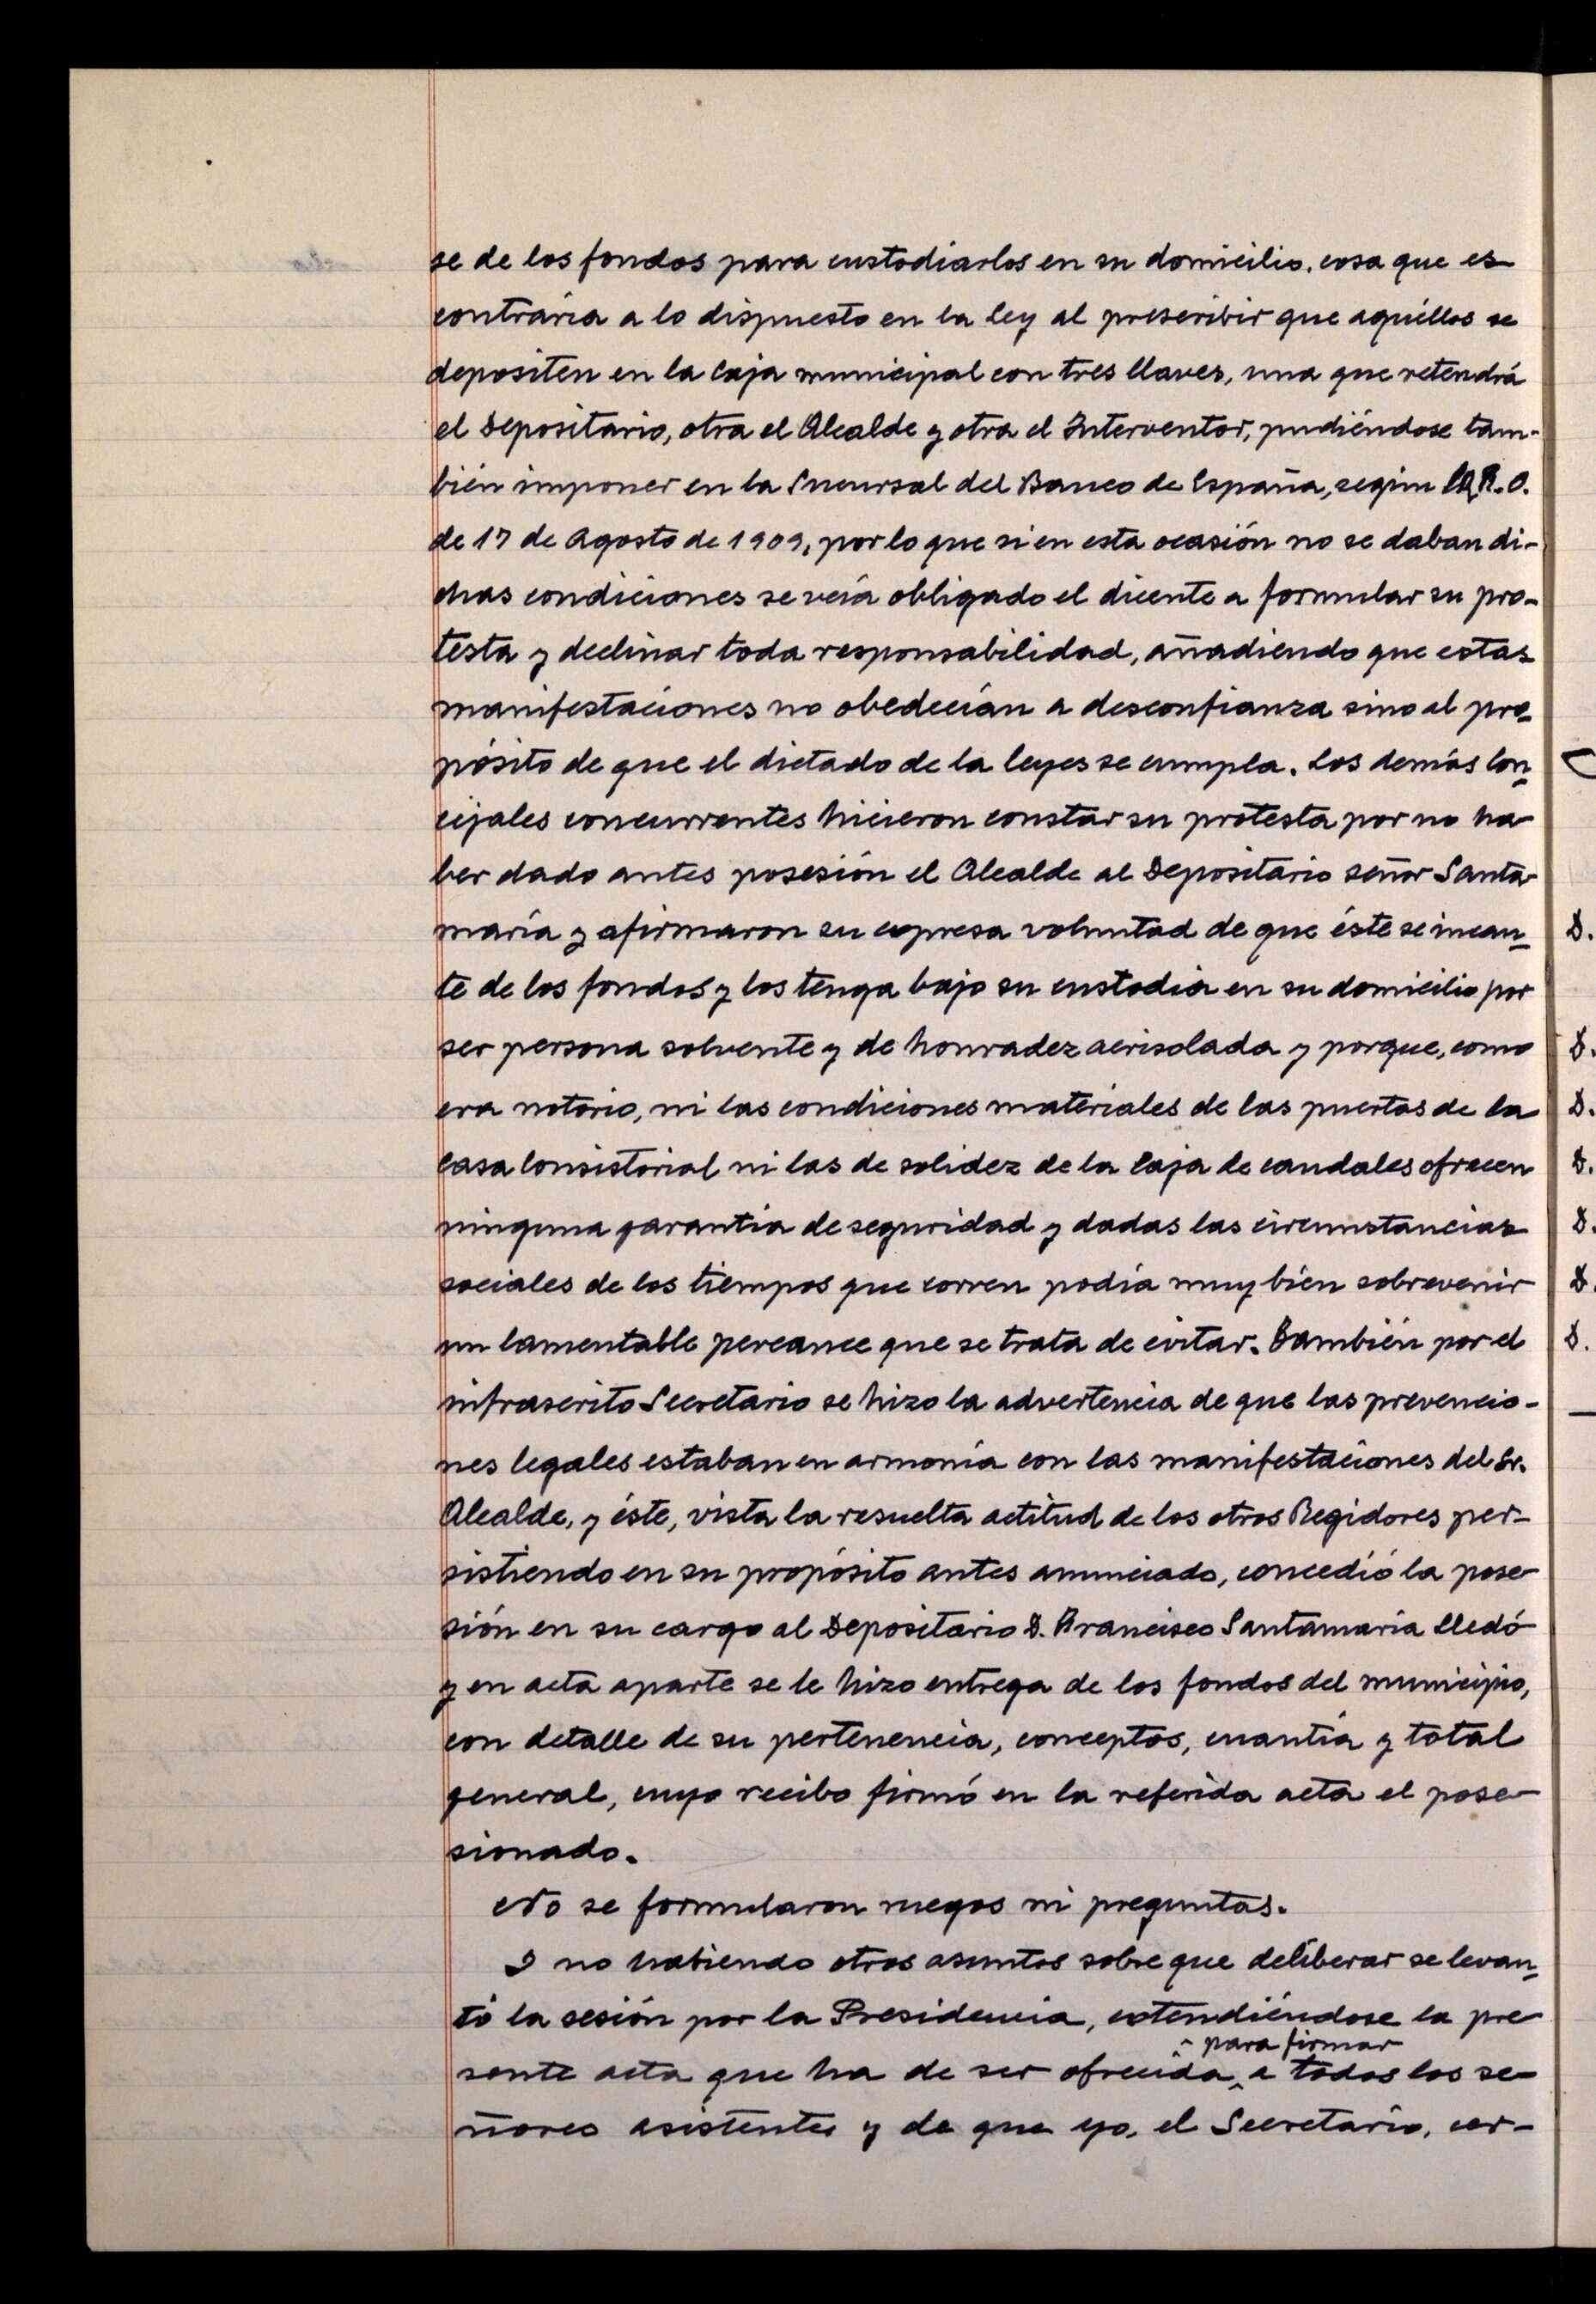 se de los fondos para custodiarlos en su domicilio, cosa que es
contrária a lo dispuesto en la ley al prescribir que aquéllos se
depositen en la Caja municipal con tres llaves, una que retendrá
el Depositario, otra el Alcalde y otra el Interventor, pudiéndose tam-
bién imponer en la Sucursal del Banco de España, según la R.O.
de 17 de Agosto de 1909, por lo que si en esta ocasión no se daban di-
chas condiciones se veía obligado el dicente a formular su pro-
testa y declinar toda responsabilidad, añadiendo que estas
manifestaciones no obedecían a desconfianza sino al pro-
pósito de que el dictado de la leyes se cumpla. Los demás Con-
cejales concurrentes hicieron constar su protesta por no ha-
ber dado antes posesión el Alcalde al Depositario señor Santa-
maría y afirmaron su expresa voluntad de que éste se incau-
te de los fondos y los tenga bajo su custodia en su domicilio por
ser persona solvente y de honradez acrisolada y porque, como
era notorio, ni las condiciones materiales de las puertas de la
Casa Consistorial ni las de solidez de la Caja de caudales ofrecen
ninguna garantía de seguridad y dadas las circunstancias
sociales de los tiempos que corren podía muy bien sobrevenir
un lamentable percance que se trata de evitar. También por el
infrascrito Secretario se hizo la advertencia de que las prevencio-
nes legales estaban en armonía con las manifestaciones del Sr.
Alcalde, y éste, vista la resuelta actitud de los otros Regidores per-
sistiendo en su propósito antes anunciado, concedió la pose-
sión en su cargo al Depositario D. Francisco Santamaría Lledó
y en acta aparte se le hizo entrega de los fondos del municipio,
con detalle de su pertenencia, conceptos, cuantía y total
general, cuyo recibo firmó en la referida acta el pose-
sionado.
No se formularon ruegos ni preguntas.
Y no habiendo otros asuntos sobre que deliberar se levan-
tó la sesión por la Presidencia, extendiéndose la pre-
para firmar
sente acta que ha de ser ofrecida a todos los se-
ñores asistentes y de que yo, el Secretario, cer-
D.
D.
D.
D.
D.
D.
D.